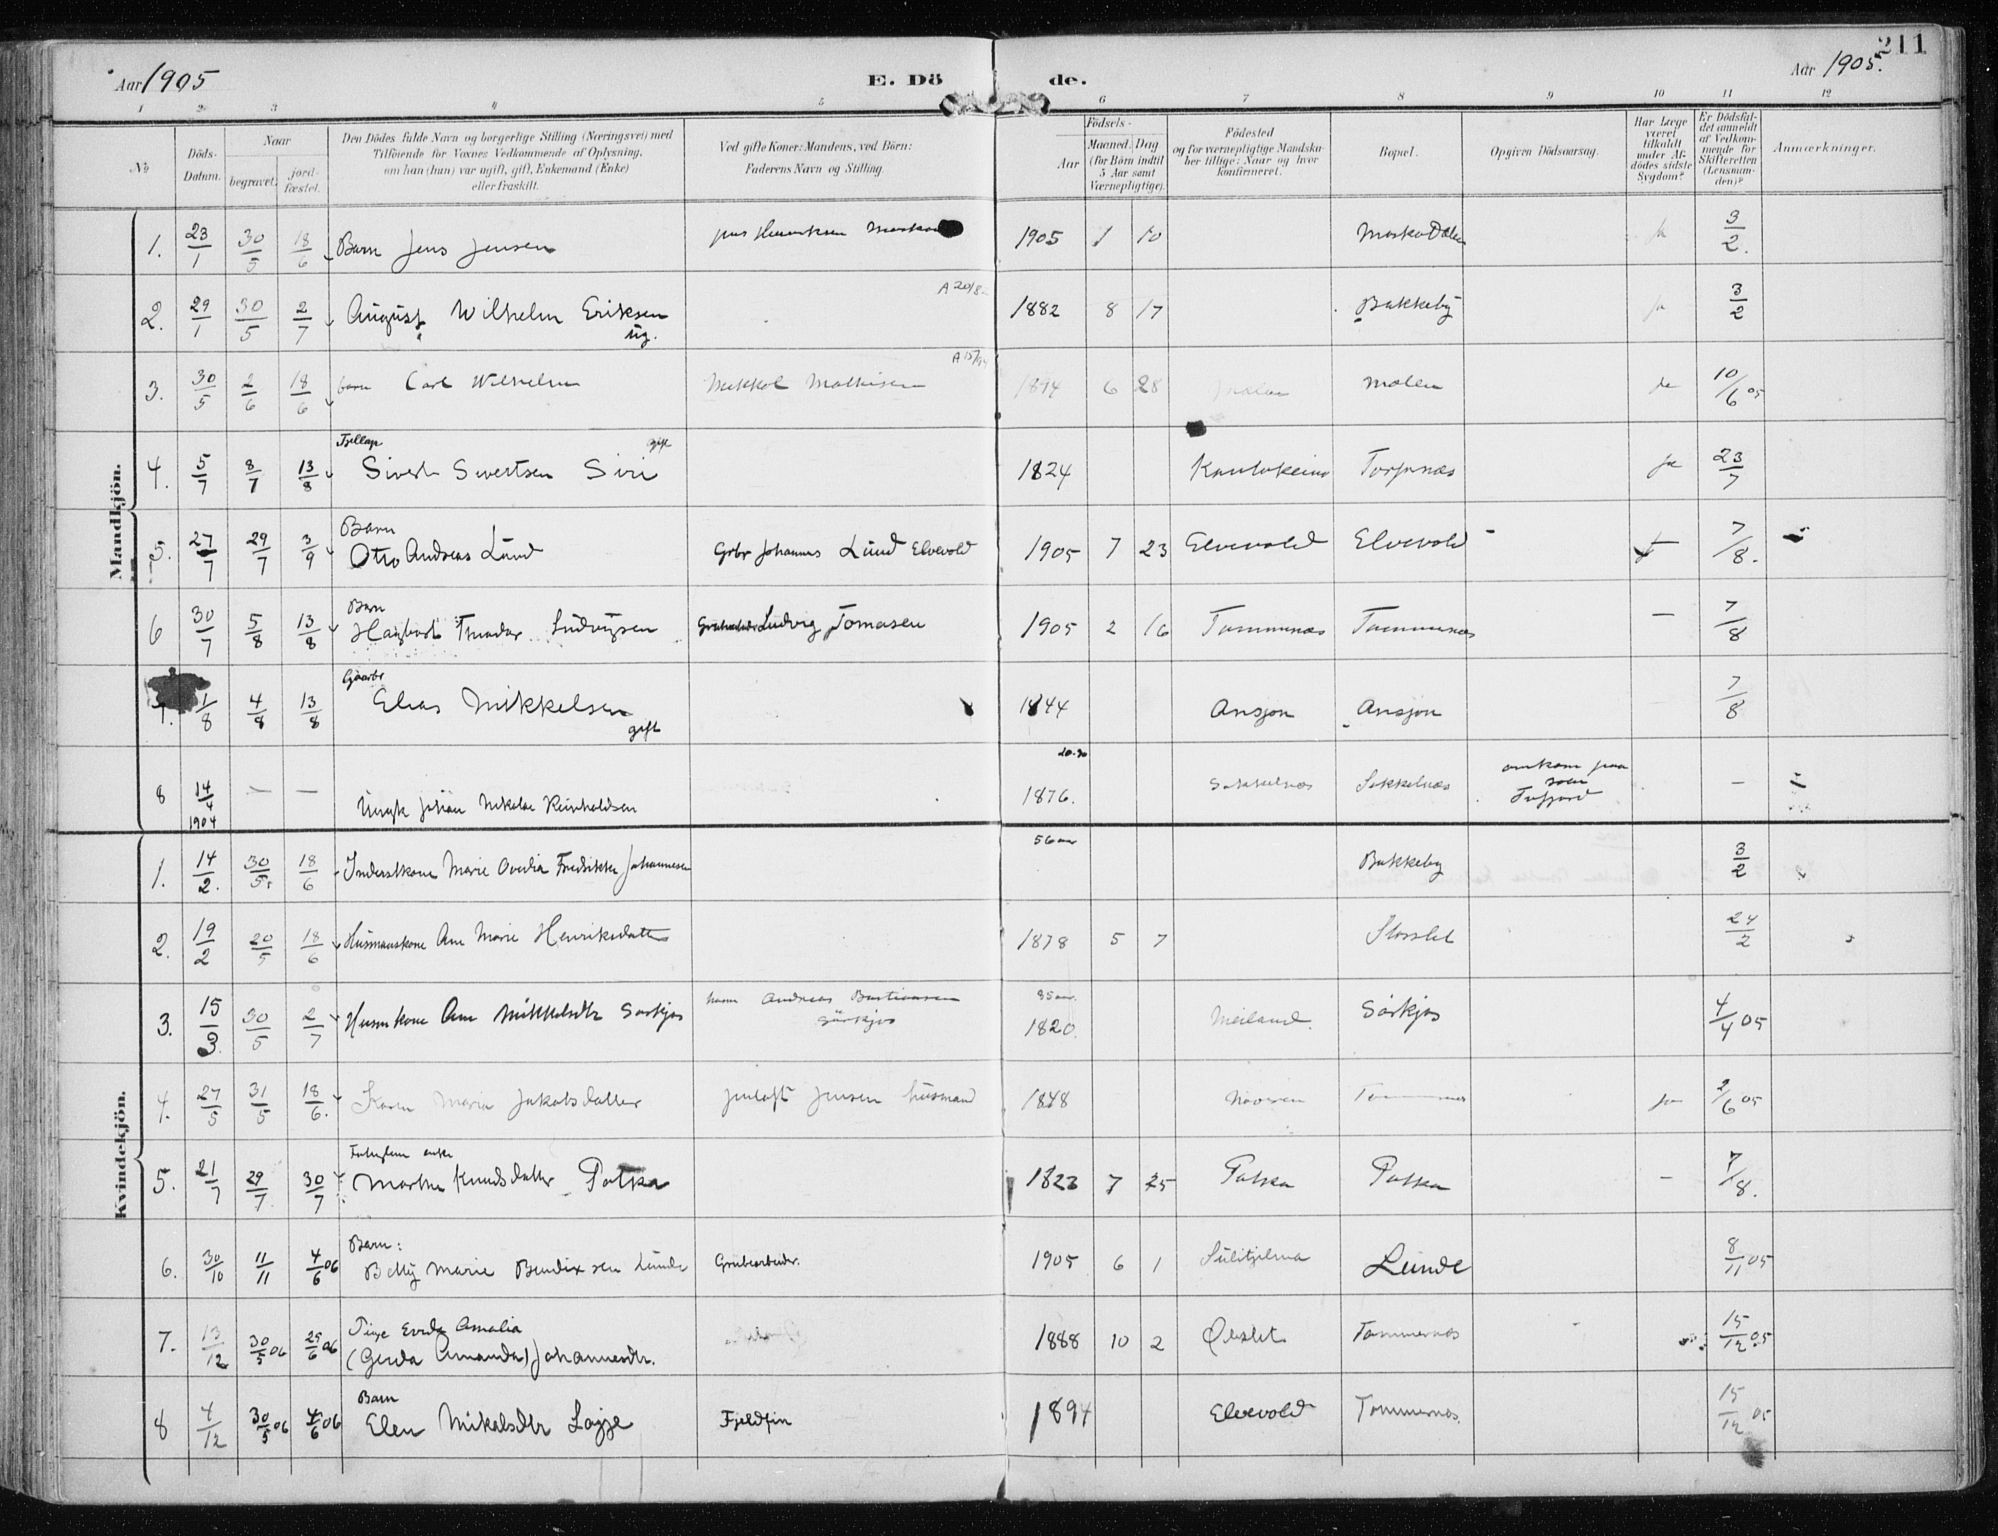 211
Aar 1905
E. Döde.
Aar 1905.
1 2 3 4 5 6 7 8 9 10 11 12
No
Döds-Datum.
Naar
begravet.
jordfæstet.
Den Dödes fulde Navn og borgerlige Stilling (Næringsvei) med
Tilföiende for Voxnes Vedkommende af Oplysning,
om han (hun) var ugift, gift, Enkemand (Enke)
eller fraskilt.
Ved gifte Koner: Mandens, ved Börn:
Faderens Navn og Stilling.
Födsels-
Aar
Maaned. Dag
(for Börn indtil
5 Aar samt
Værnepligtige).
Födested
og for værnepligtige Mandskaber tillige: Naar og hvor
konfirmeret.
Bopæl.
Opgiven Dödsaarsag.
Har Læge
været
tilkaldt
under Afdödes sidste
Sygdom?
Er Dödsfaldet anmeldt
af Vedkommende for
Skifteretten
(Lensmanden)?
Anmærkninger.
Mandkjön.
1. 23/1 30/5 18/6 Barn Jens Jensen Jens Henriksen 1905 1 10 ja 3/2.
2. 29/1 30/5 2/7 August Wilhelm Eriksen ug. A 20/8 1882 8 17 Bakkeby ja 3/2
3. 30/5 2/6 18/6 barn Carl Wilhelm Mikkel Mathisen 1894 6 28 Molen ja 10/6 05
4. 5/7 8/7 13/8 Sivert Sivertsen Siri gift 1824 Kautokeino ja 23/7
5. 27/7 29/7 3/9 Barn
Otto Andreas Lund Grbr Johannes Lund Elvevold 1905 7 23 Elvevold Elvevold 7/8.
6 30/7 5/8 13/8 Barn
Hagbart Ludvigsen Ludvig Tomasen 1905 2 16 Tommernæs Tommernæs — 7/8
7. 1/8 4/8 13/8 Gaarbr
Elias Mikkelsen gift 1844 Ansjon Ansjon 7/8
8 14/4 1904 — — Ungk Johan Nikolai Reinholdsen 1876. Sokkelnæs Sokkelnæs omkom paa —
Kvindekjön.
1. 14/2. 30/5. 18/6 Inderstkone Marie Ovedia Fredrikke Johannesen 56 aar Bakkeby 3/2
2. 19/2 20/5 18/6 Husmanskone Ane Marie Henriksdatter 1878 5 7 Storslet 24/2
3. 15/3 30/5 2/7 Husmkone Ane Mikkelsdtr Sørkjos Andreas Bastiansen
Sørkjos 85 aar. 1820. Sørkjos 4/4 05
4. 27/5 31/5 18/6. Karen Maria Jakobsdatter Jensen husmand 1848 ja 2/6 05
5. 21/7 29/7. 30/7 enke
Marthe Knudsdatter Potka 1823 7 25 Potka Potka — 7/8.
6. 30/10 11/11 4/6 06 Barn:
Betty Marie Bendixsen Lunde Grubearbeider. 1905 6 1 Sulitjelma Lunde 8/11 05
7. 13/12 30/5 06 25/6 06 Pige Evida Amalia
(Gerda Amanda) Johannesdtr. 1888 10 2 Tommernes 15/12 05
8 4/12 30/5 06 4/6 06 Barn
Elen Mikalsdtr Logje Fjeldfin 1894 Elvevold Tommernes. 15/12 05